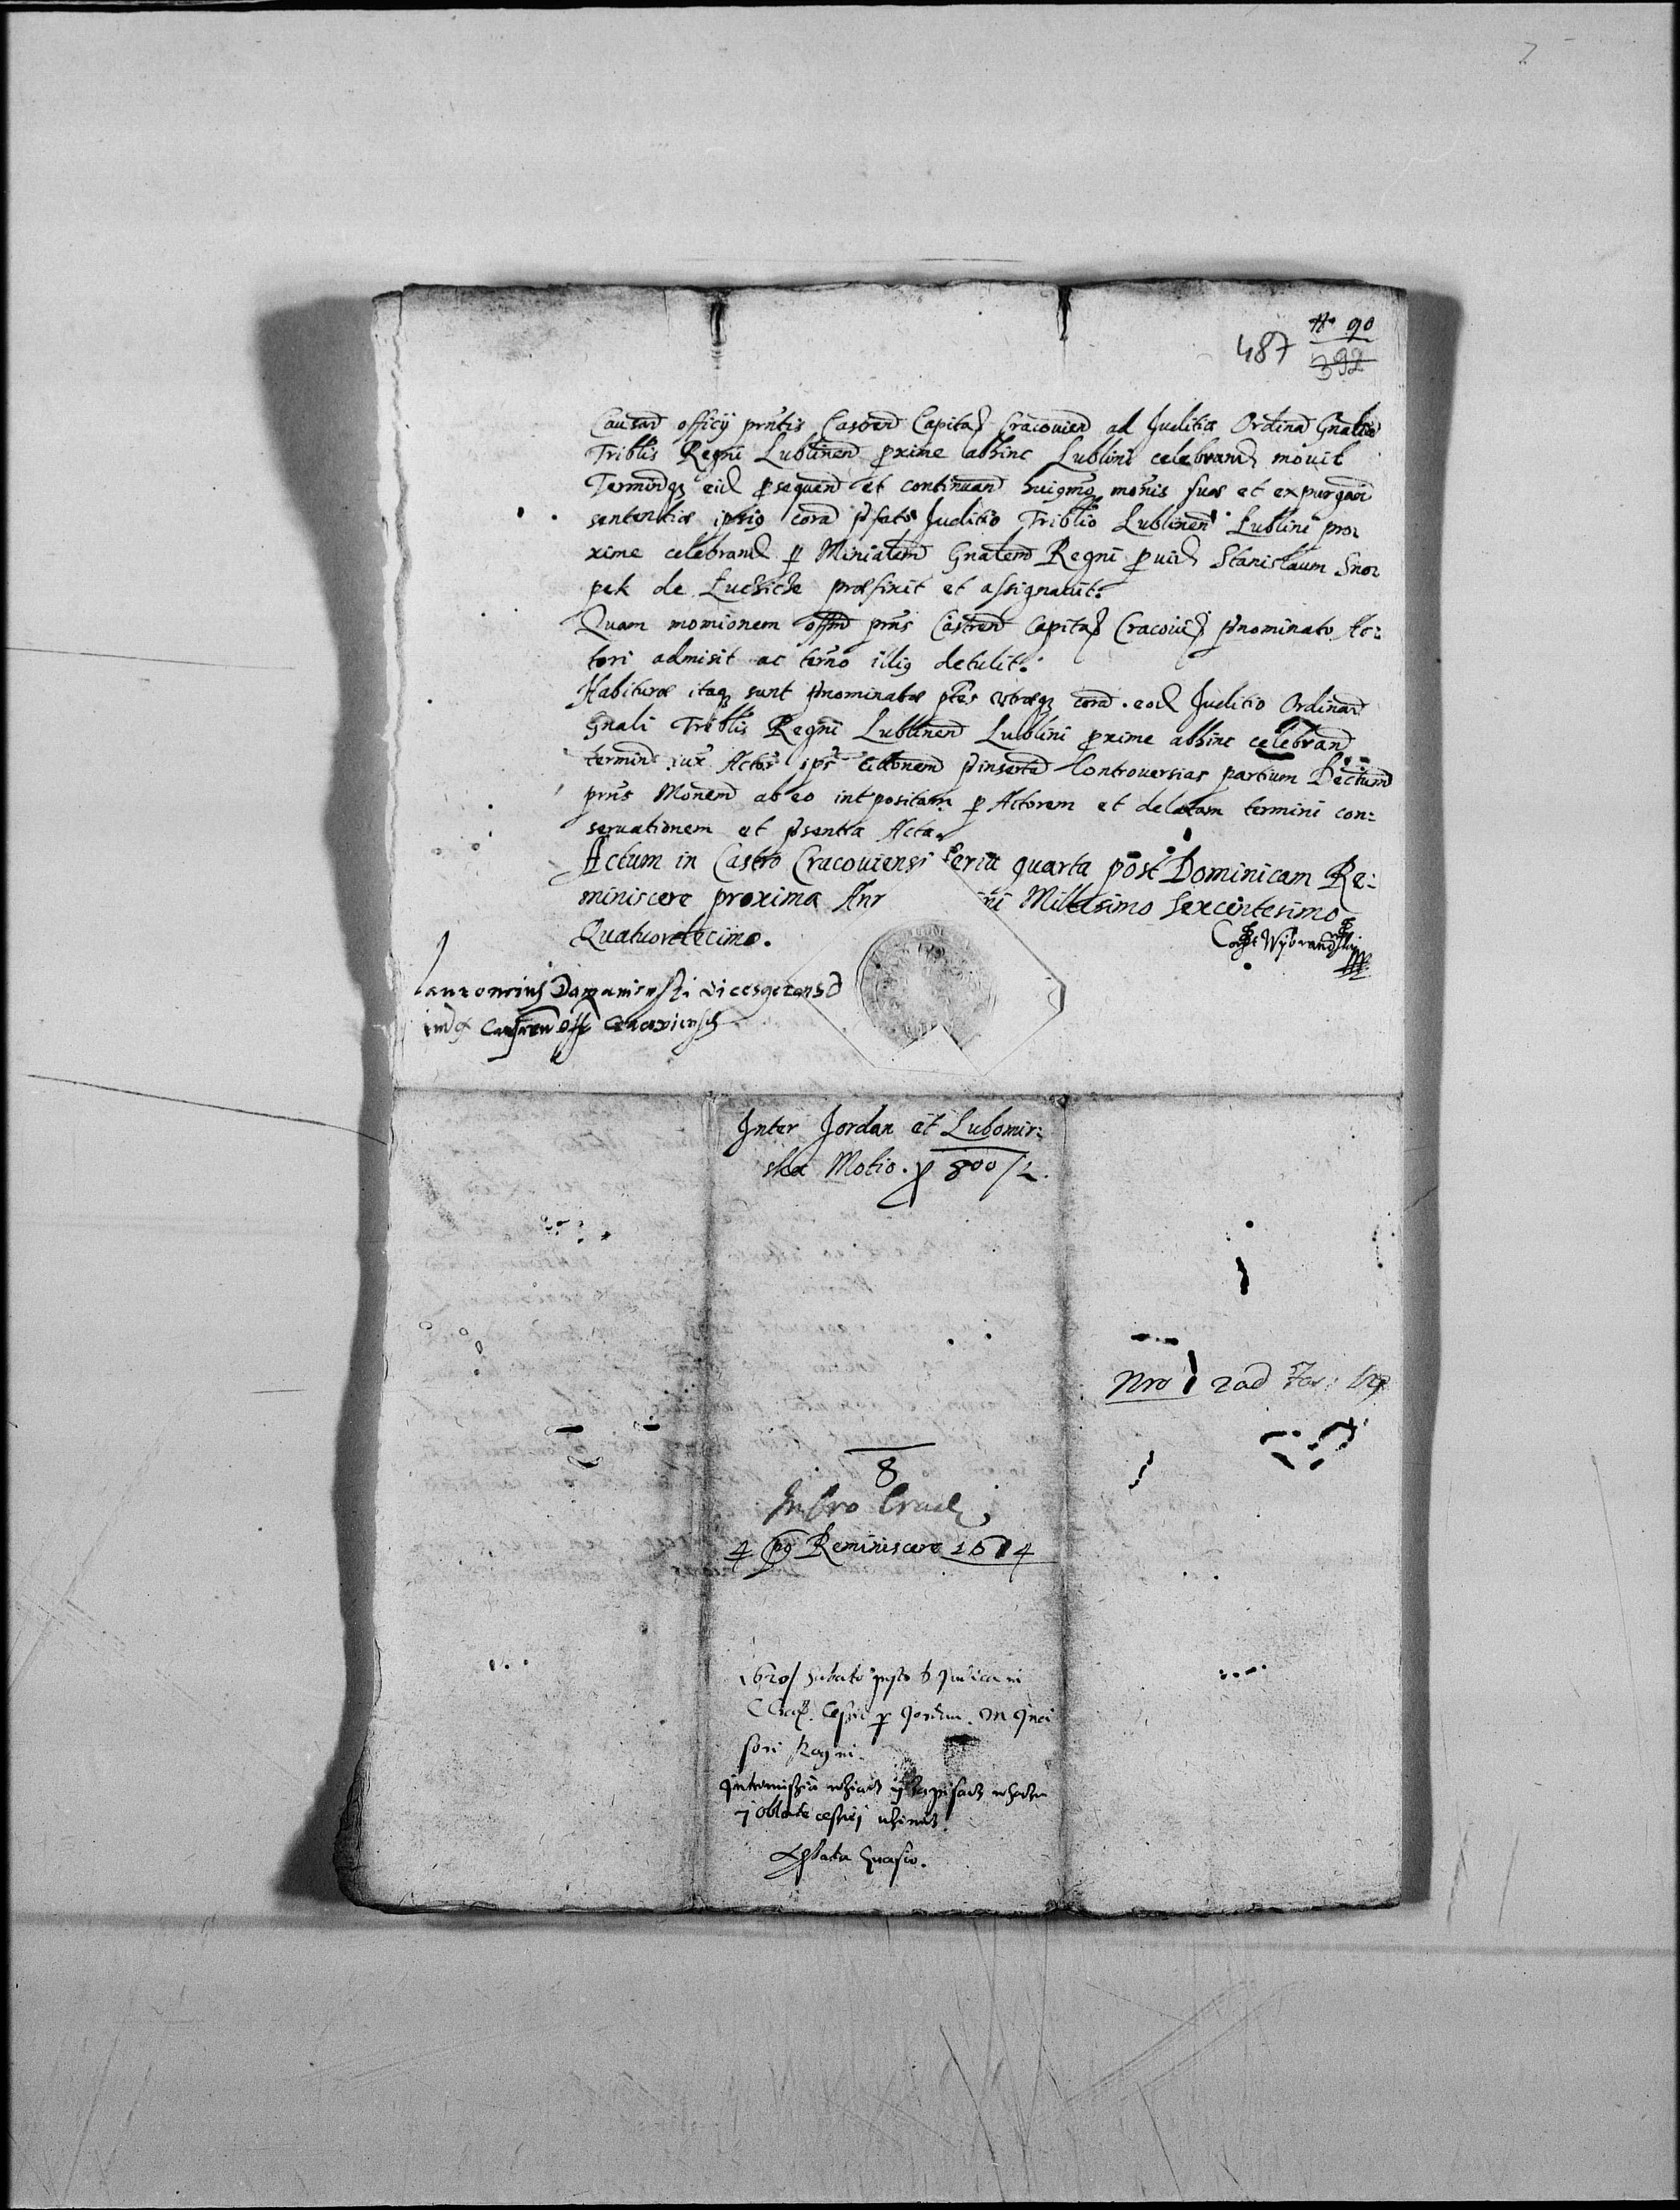 487 No 90
392
Causan̄ officij prn̄tis Castren̄ Capitaꝭ Cracouien̄ ad Juditia Ordina Gnalia
Triblis Regni Lublinen̄ proxime abhinc Lublini celebrand mouit
Terminq̨ eid prosequend et continuand huigm̄o mōnis suae et expurgan̄
sententiae ipsiq corā pfato Juditio Triblio Lublinen̄ Lublini pro:
xime celebrand p Miniatem̄ Gnalem̄ Regni prouid Stanislaum Sno:
pek de Luchicze praefixit et assignauit.
Quam momionem offm̄ prn̄s Castren̄ Capitaꝭ Cracouiꝭ pnominato Ac:
tori admisit ac termo illiq detulit.
Habiturae itaq̨ sunt pnominatae ptes utraeq̨ corā eod Juditio Ordinar̄
Gnali Triblis Regni Lublinen̄ Lublini proxime abhinc celebrand
termin̄ iux Actor ips citonem̄ pinsertā Controuersias partium Dectum̄
prn̄s Monem̄ ab eo intpositam p Actorem et delatam termini con:
seruationem et psentia Acta.
Actum in Castro Cracouiensi feria quarta post Dominicam Re:
miniscere proxima Ann ni Millesimo Sexcentesimo
Quatuordecimo.
Corrt Wybranski
Laurentius vicesgerens
iudex Castren̄ Cracouiensis
Inter Jordan et Lubomir:
ska Motio. p 800 /L.
Nro 2 ad Fas:
8
In Cro Cracꝭ
4 pq Reminiscere 1614
1620 Sabato Judica in
C Crac. Cessio p Jordan. M Inci
sori Regni.
Intromissia
i oblata cessiei